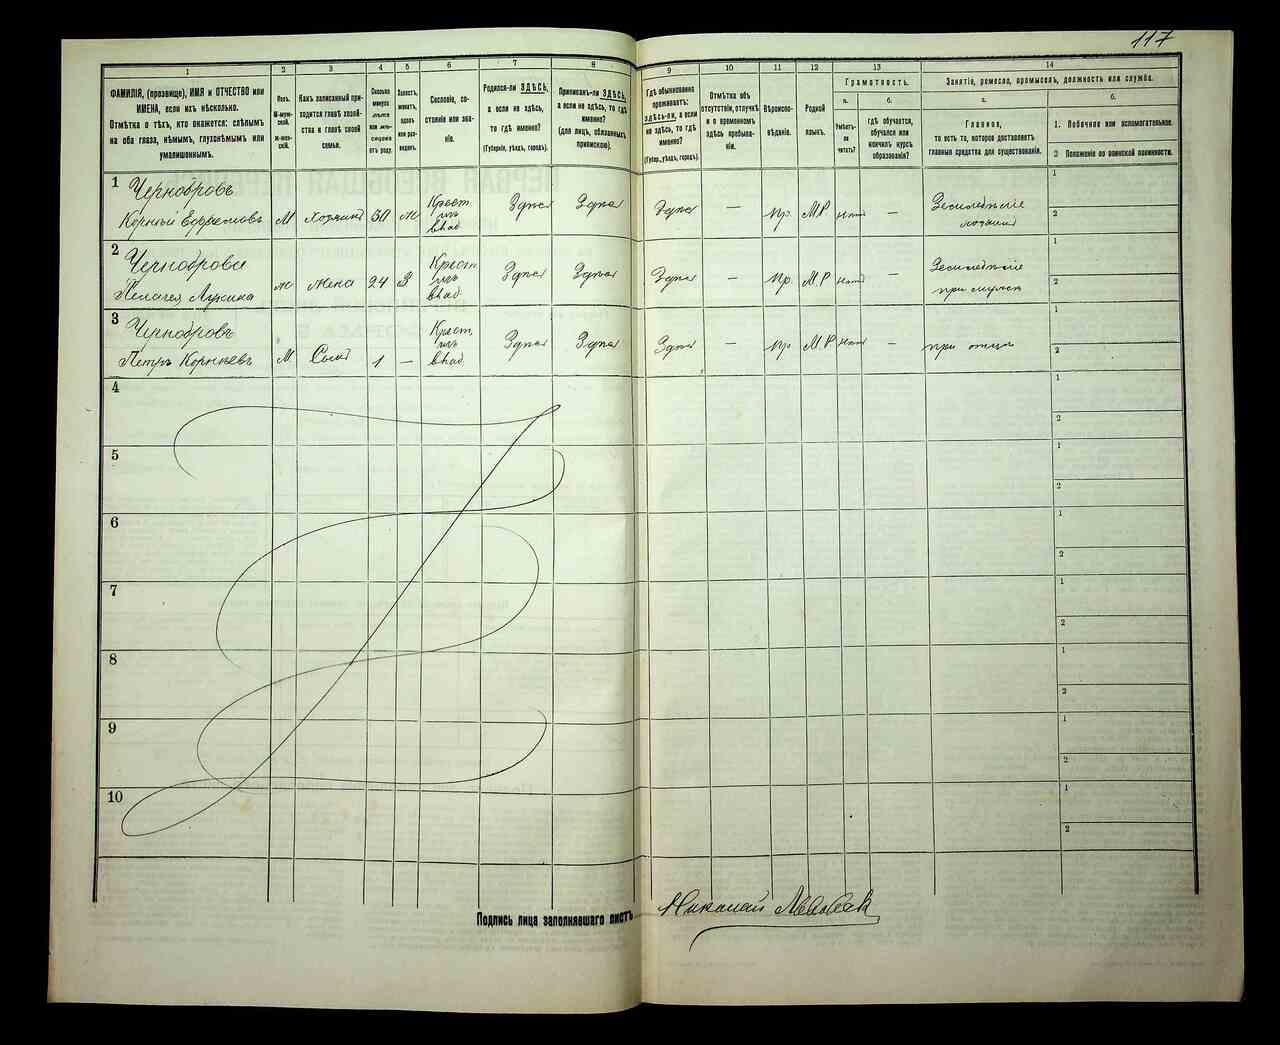 117
1 2 3 4 5 6 7 8 9 10 11 12 13 14
ФАМИЛІЯ, (прозвище), ИМЯ и ОТЧЕСТВО или
ИМЕНА, если ихъ нѣсколько.
Отмѣтка о тѣхъ, кто окажется: слѣпымъ
на оба глаза, нѣмымъ, глухонѣмымъ или
умалишоннымъ.
Полъ.
М-муж-
ской.
Ж-жен-
скій.
Какъ записанный при-
ходится главѣ хозяй-
ства и главѣ своей
семьи.
Сколько
минуло
лѣтъ
или мѣ-
сяцевъ
отъ роду.
Холостъ,
женатъ,
вдовъ
или раз-
веденъ.
Сословіе, со-
стояніе или зва-
ніе.
Родился-ли ЗДѢСЬ,
а если не здѣсь,
то гдѣ именно?
(Губернія, уѣздъ, городъ).
Приписанъ-ли ЗДѢСЬ,
а если не здѣсь, то гдѣ
именно?
(для лицъ, обязанныхъ
припискою).
Гдѣ обыкновенно
проживаетъ:
ЗДѢСЬ-ЛИ, а если
не здѣсь, то гдѣ
именно?
(Губер., уѣздъ, городъ).
Отмѣтка объ
отсутствіи, отлучкѣ
и о временномъ
здѣсь пребыва-
ніи.
Вѣроиспо-
вѣданіе.
Родной
языкъ.
Грамотность.
а.
Умѣетъ-
ли
читать?
б.
гдѣ обучается,
обучался или
кончилъ курсъ
образованія?
Занятіе, ремесло, промыселъ, должность или служба.
а.
Главное,
то есть то, которое доставляетъ
главныя средства для существованія.
б.
1. Побочное или вспомогательное.
2 Положеніе по воинской повинности.
1 Чернобровъ
Корній Ефремовъ М хозяинъ 30 ж Крест. изъ влад. Здѣсь Здѣсь Здѣсь — пр. М.Р. нѣтъ — Земледѣліе хозяинъ 1 2
2 Черноброва
Пелагея Лукина ж жена 24 З Крест. изъ влад. Здѣсь Здѣсь Здѣсь — пр. М.Р нѣтъ — Земледѣліе при мужѣ 1 2
3 Чернобровъ
Петръ Корніевъ М Сынъ 1 — Крест. изъ влад. Здѣсь Здѣсь Здѣсь — пр. М.Р нѣтъ — при отцѣ 1 2
4 1 2
5 1 2
6 1 2
7 1 2
8 1 2
9 1 2
10 1 2
Подпись лица заполнявшаго листъ Николай